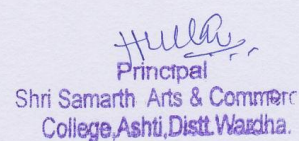 Principal
Shri Samarth Arts & Commerc
College, Ashti, Distt. Wardha.